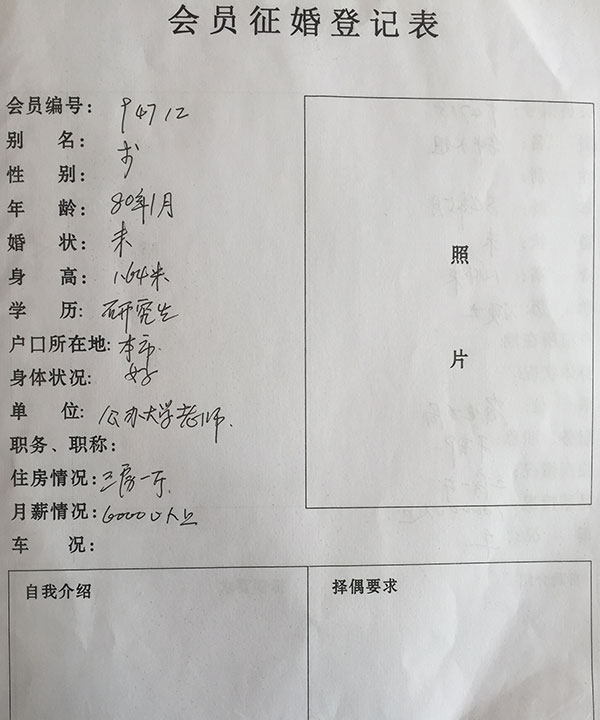 会员征婚登记表
会员编号: 94712
别 名:
性 别:
年 龄: 80年1月
婚 状: 未
身 高: 1.64米
学 历: 研究生
户口所在地: 本市
身体状况: 好
单 位: 公办大学老师.
职务、职称:
住房情况: 三房一厅.
月薪情况: 6000以上
车 况:
照
片
自我介绍
择偶要求